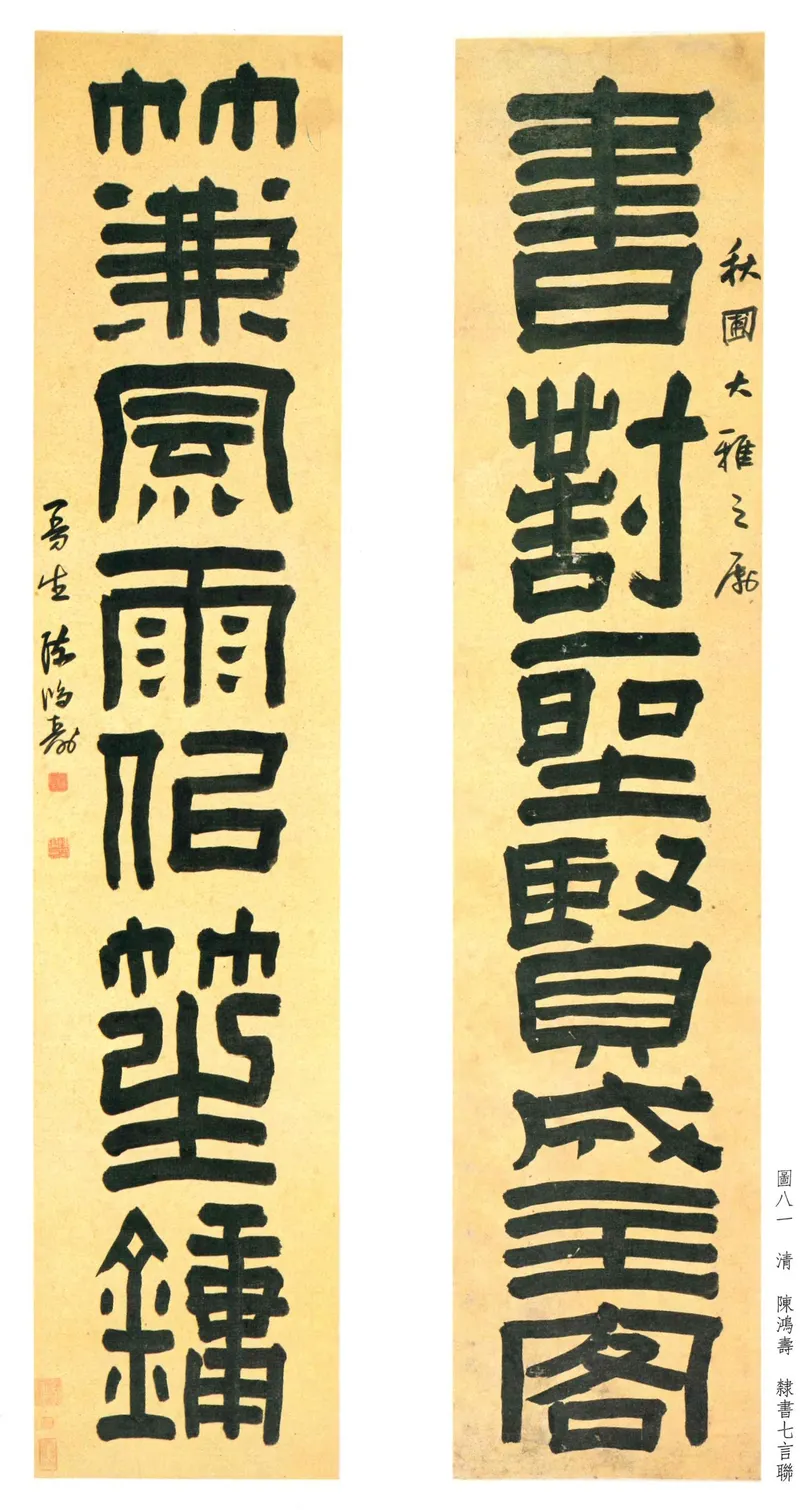 圖八一 清 陳鴻壽 隸書七言聯
秋圃大雅之屬
書對聖賢成主客
竹兼風雨佀笙鏞
曼生陳鴻壽